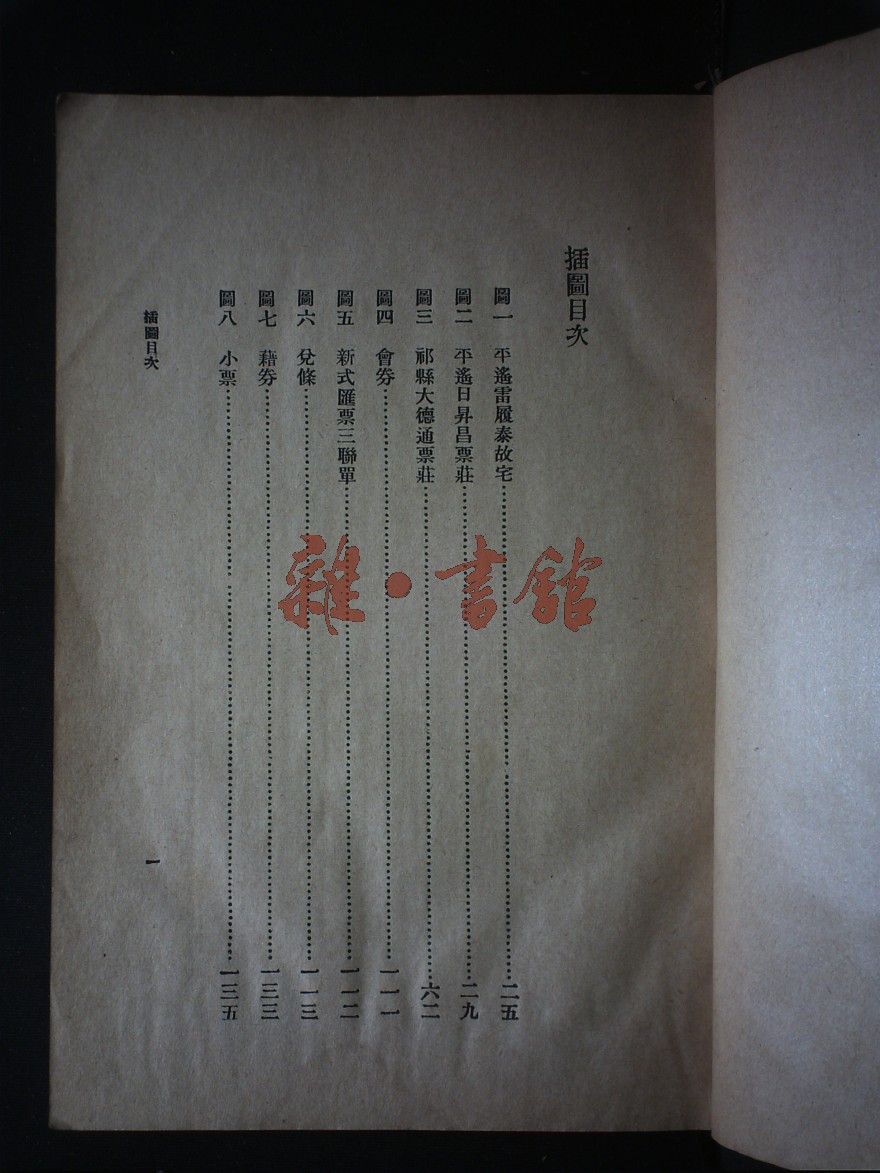 插圖目次
圖一　平遙雷履泰故宅…………二五
圖二　平遙日昇昌票莊…………二九
圖三　祁縣大德通票莊…………六二
圖四　會券…………一一一
圖五　新式匯票三聯單…………一一二
圖六　兌條…………一一三
圖七　藉券…………一三三
圖八　小票…………一三五
插圖目次
一
雜·書館